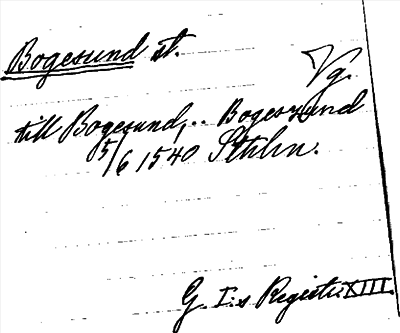 Bogesund st.
Vg.
till Bogesund, .. Bogesund
5/6 1540 Sthlm.
G. I:s Registr. XIII.